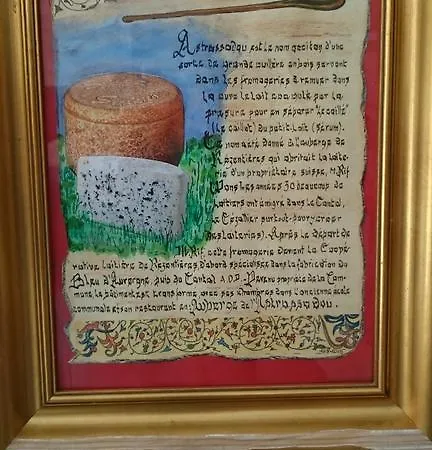 Astrassadou est le nom occitan d'une
sorte de grande cuillère en bois servant
dans les fromageries à remuer dans
la cuve le lait coagulé par la
présure pour en séparer le caillé"
(le caillot) du petit-lait (sérum).
Ce nom a été donné à l'auberge de
Rézentières qui abritait la laite-
rie d'un propriétaire suisse, M. Rif
Dans les années 30 beaucoup de
laitiers ont émigré dans le Cantal,
le Cézallier surtout, pour y créer
des laiteries). Après le départ de
M. Rif, cette fromagerie devient la Coopé-
rative laitière de Rézentières d'abord spécialisée dans la fabrication du
Bleu d'Auvergne, puis du Cantal A.O.P. Devenu propriété de la Com-
mune, le bâtiment est transformé avec ses chambres dans l'ancienne école
communale et son restaurant en Auberge de l'Astrassadou.